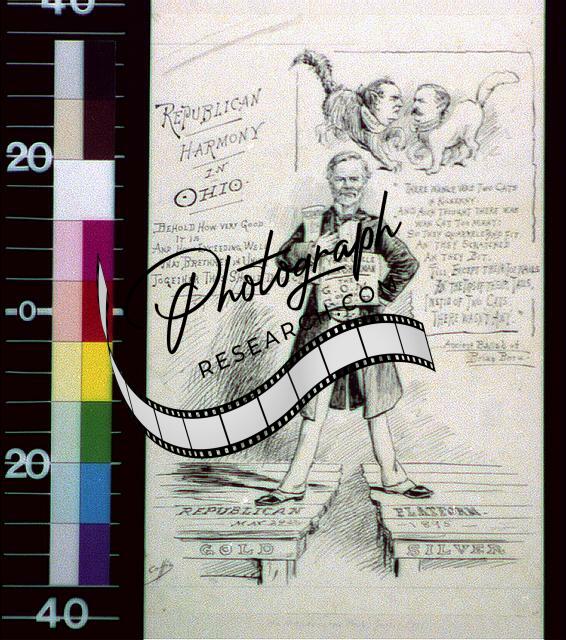 40
20
0
20
40
REPUBLICAN
HARMONY
IN
OHIO.
BEHOLD HOW VERY GOOD
IT IS
AND HOW EXCEEDING WELL
TOGETHER
"THERE WANCE WAS TWO CATS
IN KILKENNY.
AND AICH THOUGHT THERE WAS
WAN CAT TOO MANY:
SO THEY QUARRELED AND FIT
AN THEY SCRATCHED
AN THEY BIT.
TILL EXCEPT THEIR TOE NAILS
AN THE TIPS OF THEIR TAILS,
INSTID OF TWO CATS,
THERE WASN'T ANY."
Ancient Ballad of
Brian Boru.
Photograph
RESEARCH.COM
G.O.P.
REPUBLICAN PLATFORM.
MAY 28TH 1895
GOLD SILVER